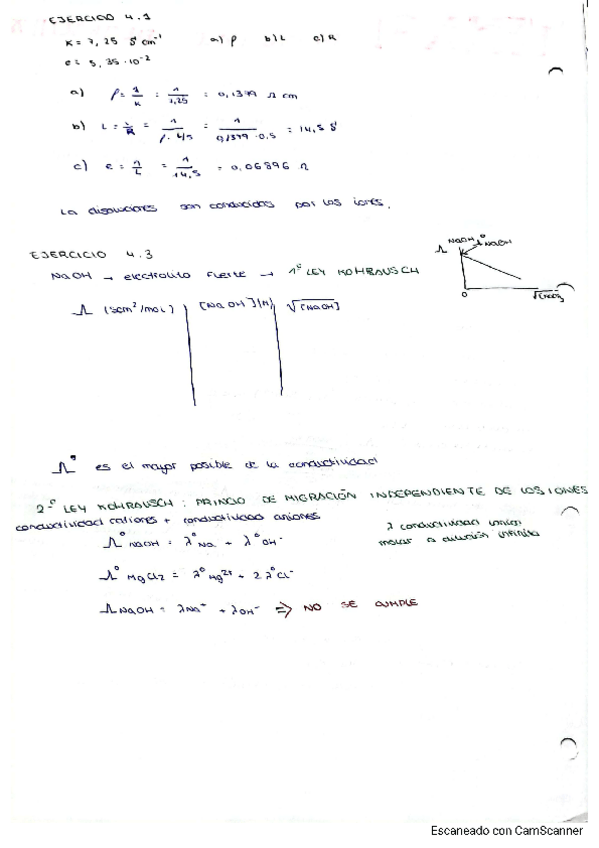 EJERCICIO 4.1
K = 7,25 S cm⁻¹ a) ρ b) L c) R
e = 5,35·10⁻²
a) ρ = 1/K = 1/7,25 = 0,1379 Ω cm
b) L = 1/R = 1/(ρ·L/S) = 1/(0,1379·0.5) = 14,5 S
c) e = 1/L = 1/14,5 = 0.06896 Ω
La disoluciones son conducidas por los iones.
EJERCICIO 4.3
NaOH → electrolito fuerte → 1º LEY KOHRAUSCH
Λ NaOH Λ° NaOH
0
Λ (Scm²/mol) [NaOH](M) √[NaOH]
Λ° es el mayor posible de la conductividad
2º LEY KOHRAUSCH: PRINCIO DE MIGRACIÓN INDEPENDIENTE DE LOS IONES
conductividad cationes + conductividad aniones
λ conductividad iónica
molar a dilución infinita
Λ° NaOH = λ° Na + λ° OH⁻
Λ° MgCl2 = λ° Mg²⁺ + 2λ° Cl⁻
Λ NaOH = λNa⁺ + λOH⁻ ⇒ NO SE CUMPLE
Escaneado con CamScanner